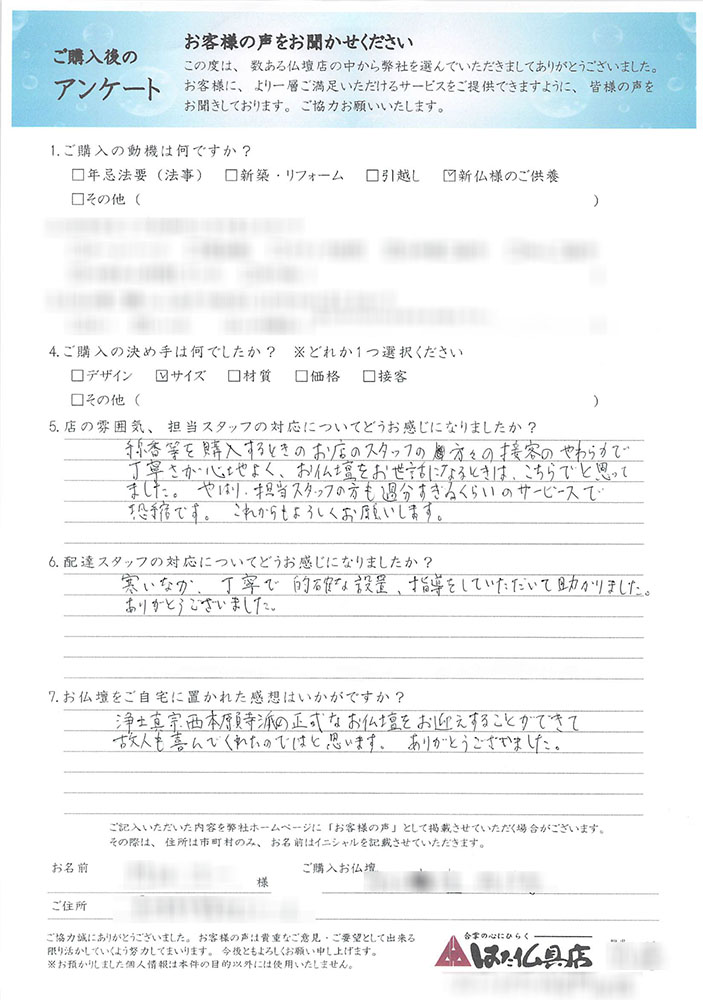 ご購入後の
アンケート
お客様の声をお聞かせください
この度は、数ある仏壇店の中から弊社を選んでいただきましてありがとうございました。
お客様に、より一層ご満足いただけるサービスをご提供できますように、皆様の声を
お聞きしております。ご協力お願いいたします。
1.ご購入の動機は何ですか?
□年忌法要(法事) □新築・リフォーム □引越し ☑新仏様のご供養
□その他( )
4.ご購入の決め手は何でしたか? ※どれか1つ選択ください
□デザイン ☑サイズ □材質 □価格 □接客
□その他( )
5.店の雰囲気、担当スタッフの対応についてどうお感じになりましたか?
線香等を購入するときのお店のスタッフの方々の接客のやわらかで
丁寧さが心地よく、お仏壇をお世話になるときは、こちらでと思って
ました。やはり、担当スタッフの方も過分すぎるくらいのサービースで
恐縮です。これからもよろしくお願いします。
6.配達スタッフの対応についてどうお感じになりましたか?
寒いなか、丁寧で的確な設置、指導をしていただいて助かりました。
ありがとうございました。
7.お仏壇をご自宅に置かれた感想はいかがですか?
浄土真宗西本願寺派の正式なお仏壇をお迎えすることができて
故人も喜んでくれたのではと思います。ありがとうございました。
ご記入いただいた内容を弊社ホームページに「お客様の声」として掲載させていただく場合がございます。
その際は、住所は市町村のみ、お名前はイニシャルを記載させていただきます。
お名前 様 ご購入お仏壇
ご住所
ご協力誠にありがとうございました。お客様の声は貴重なご意見・ご要望として出来る
限り活かしていくよう努力してまいります。今後ともよろしくお願い申し上げます。
※お預かりしました個人情報は本件の目的以外には使用いたしません。
合掌の心にひらく
はた仏具店